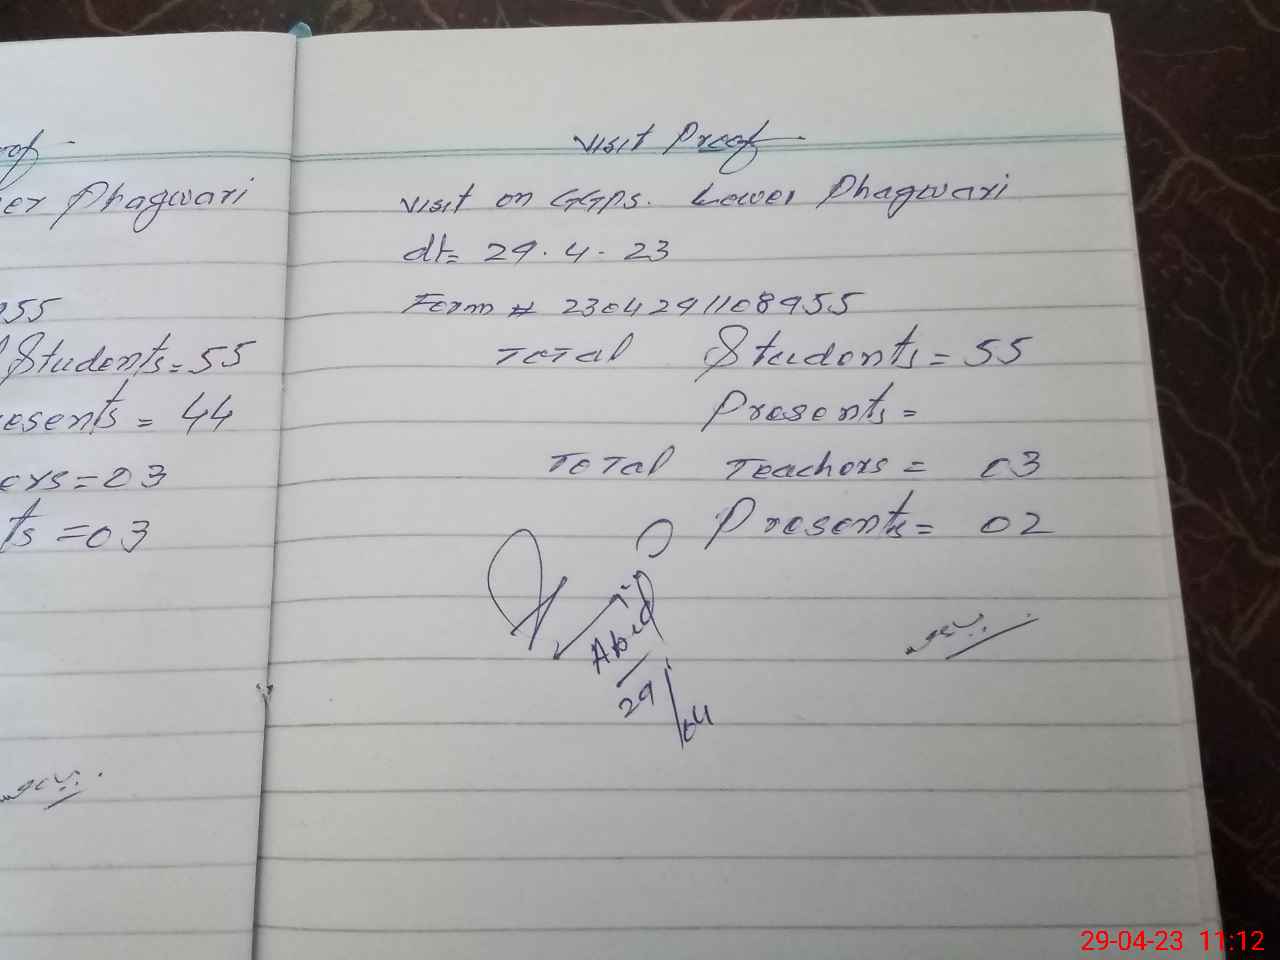 er Phagwari
955
Students = 55
esents = 44
ers = 03
ts = 03
Visit Proof
Visit on GGPS. Lower Phagwari
dt= 29.4.23
Form # 2304291108955
Total Students = 55
Presents =
Total Teachers = 03
Presents = 02
Abid
29/04
29-04-23 11:12